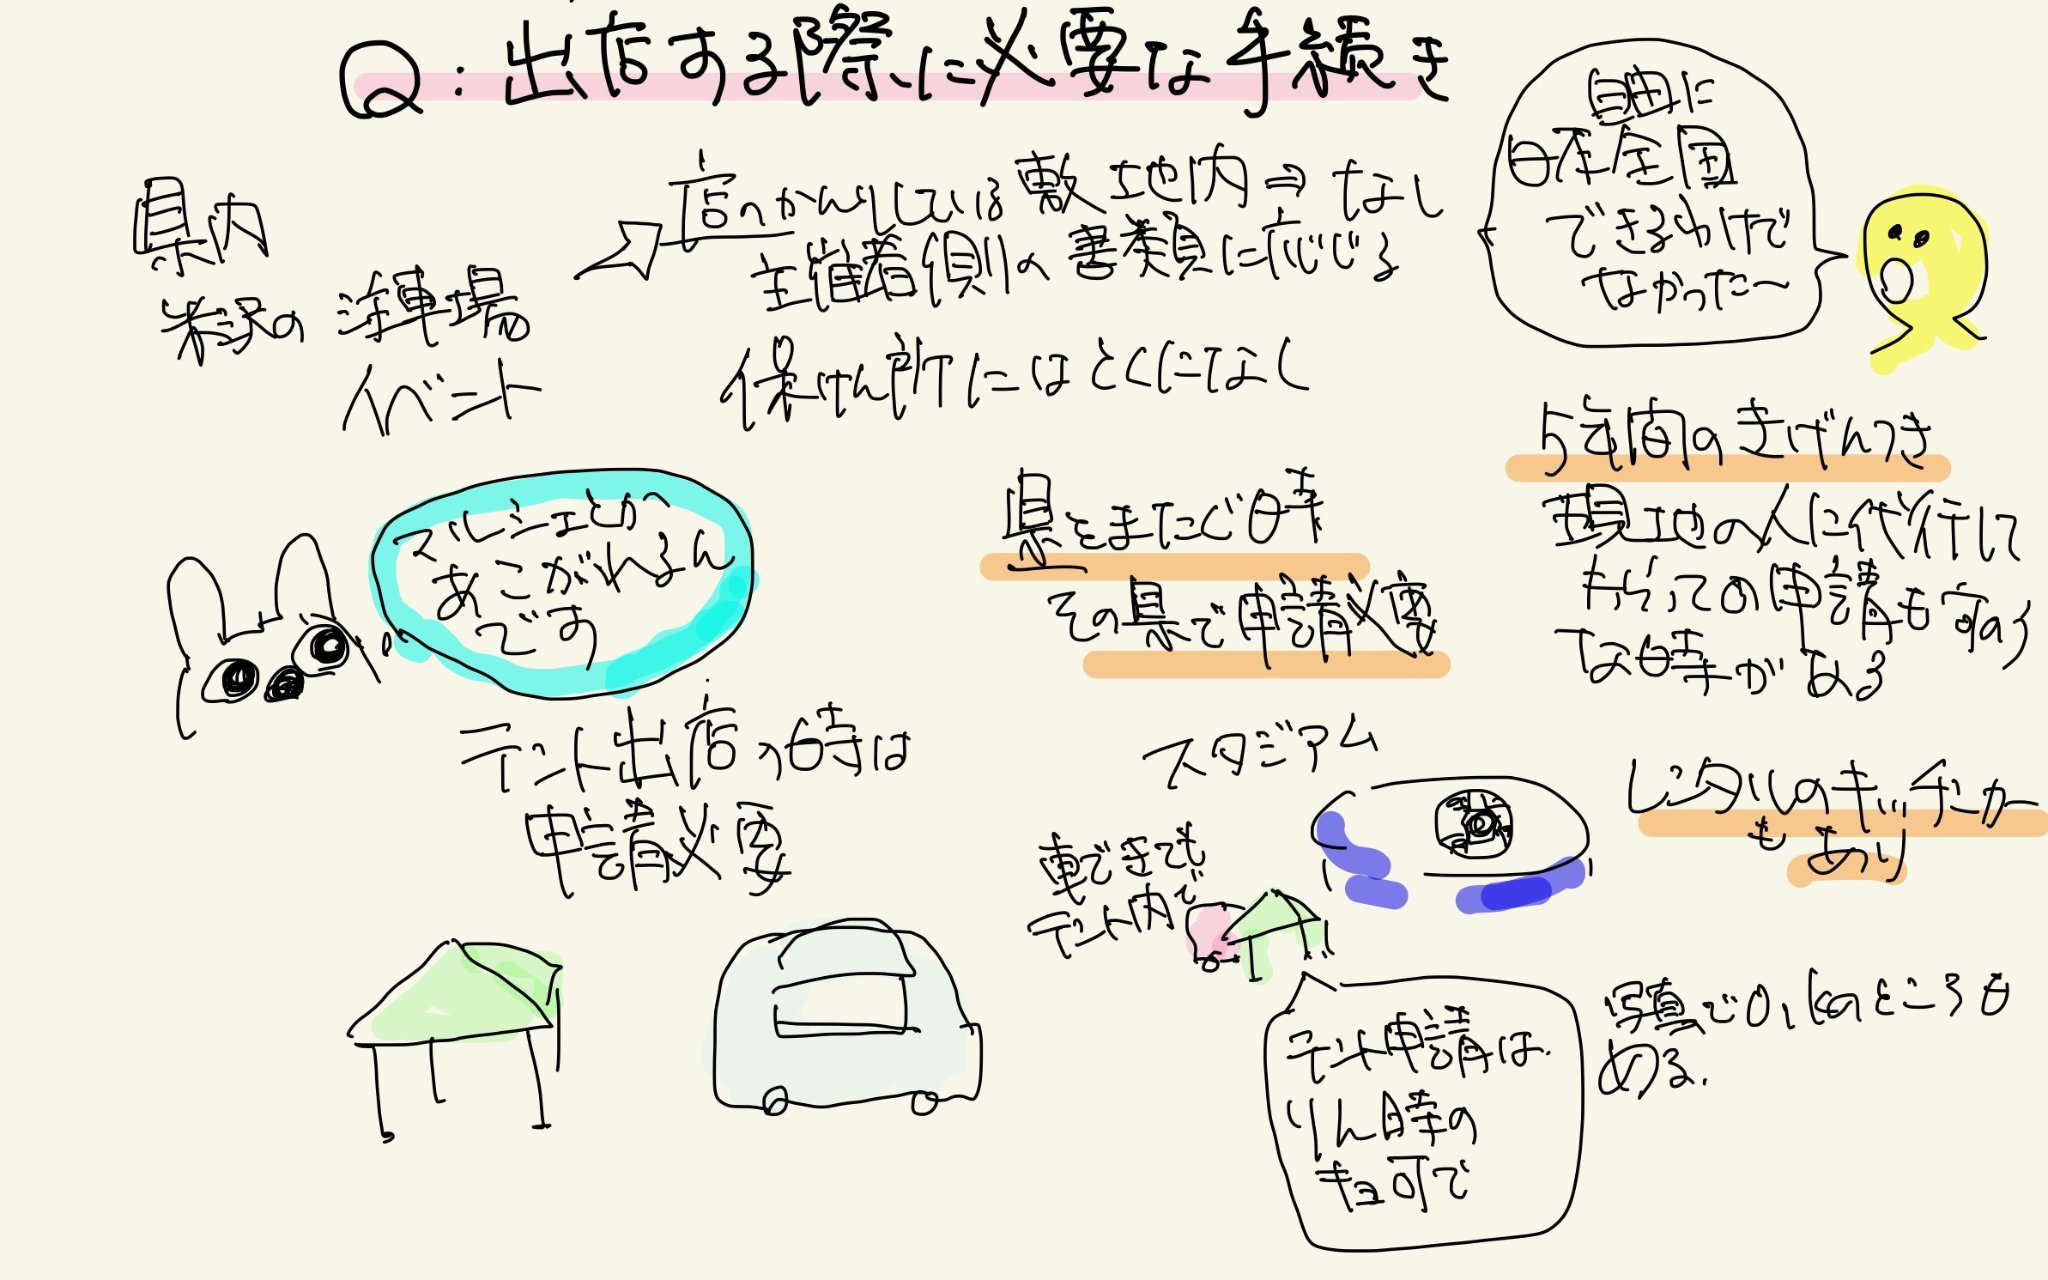 Q:出店する際に必要な手続き
県内
米沢の 洗車場
イベント
店のかんりしている敷地内⇒なし
主催者側の書類に応じる
保けん所にはとくになし
自由に
日本全国
できるわけで
なかった〜
マルシェとか
あこがれるん
です
県をまたぐ時
その県で申請必要
5年間のきげんつき
現地の人に代行して
もらっての申請も可のう
な時がある
テント出店の時は
申請必要
スタジアム
車できても
テント内で
テント申請は
りん時の
キョ可で
レンタルのキッチンカー
も あり
写真でO.kのところも
ある.